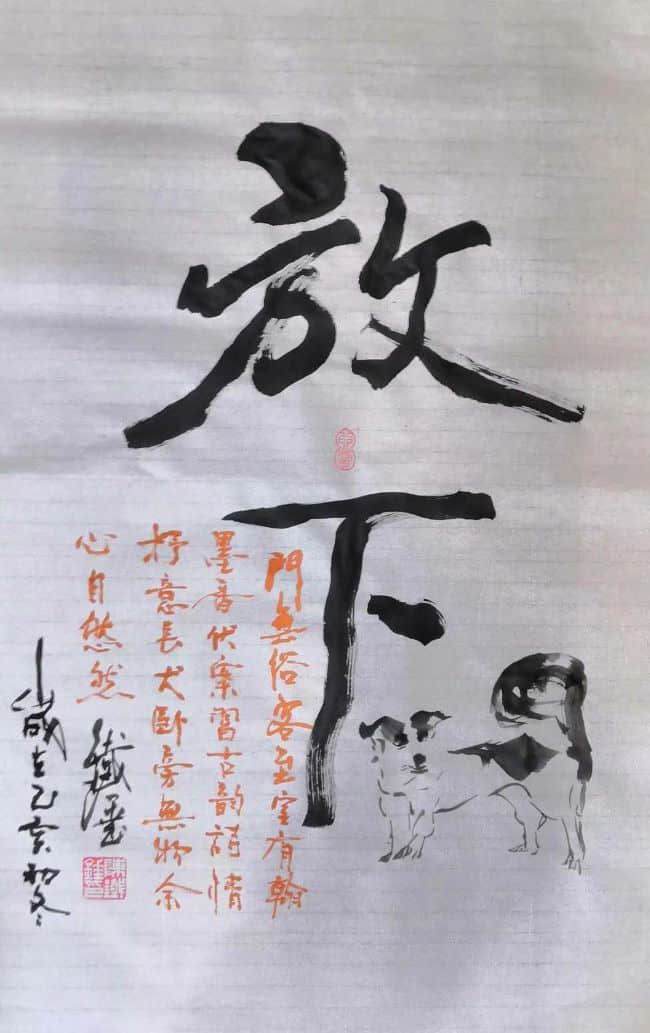 放下
門無俗客至室有翰
墨香伏案習古韵詩情
抒意長犬卧旁無物余
心自悠然
鐵
歲在己亥初冬